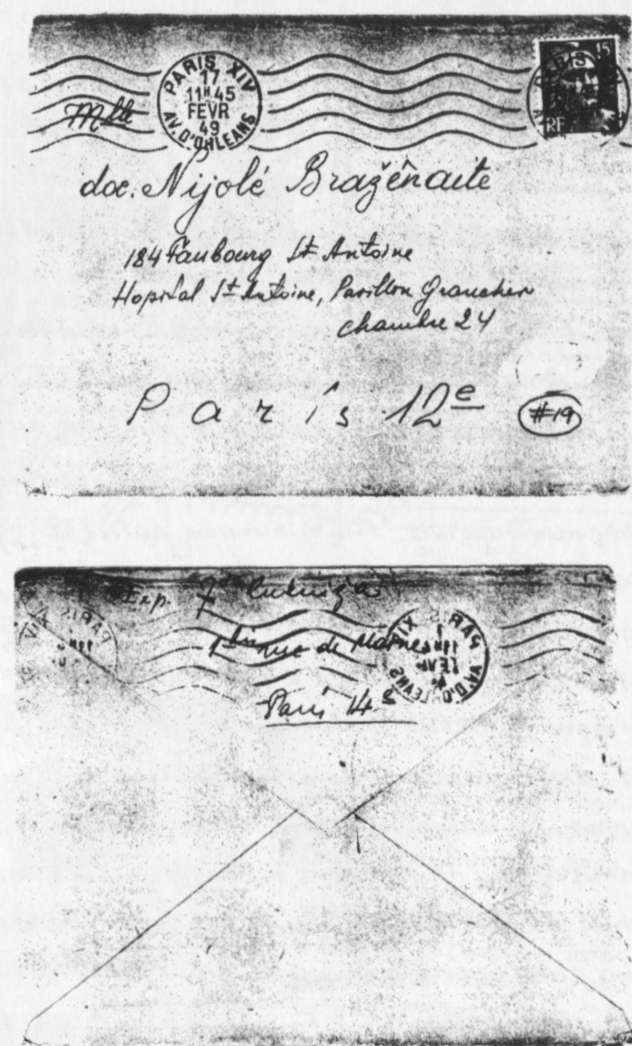 PARIS XIV
17
11H45
FEVR
49
AV. D'ORLEANS
15
RF
Mlle
doc. Nijolė Bražėnaitė
184 Faubourg St Antoine
Hopital St Antoine, Pavillon
chambre 24
Paris 12e
#19
Exp.
rue de
Paris 14e
PARIS XIV
AV. D'ORLEANS